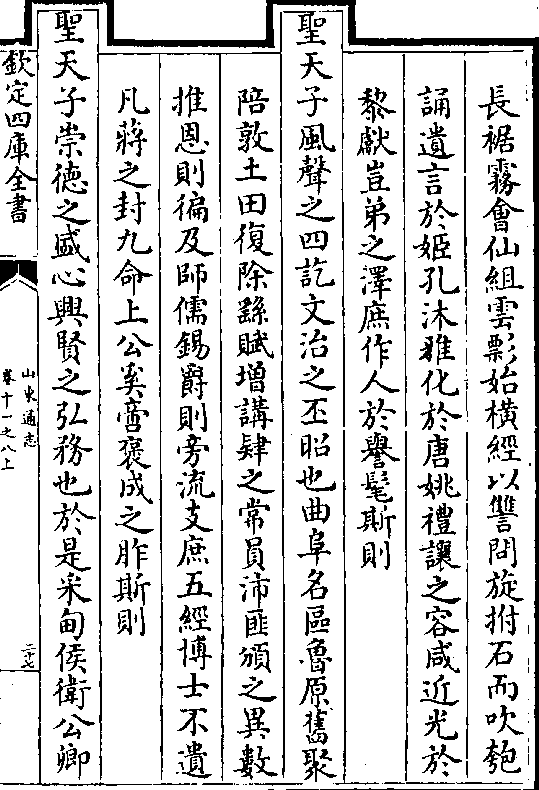 長裾霧會仙組雲飄始橫經以讐問旋拊石而吹匏
誦遺言於姬孔沐雅化於唐姚禮讓之容咸近光於
黎獻豈弟之澤庶作人於譽髦斯則
聖天子風聲之四訖文治之丕昭也曲阜名區魯原舊聚
陪敦土田復除繇賦增講肄之常員沛匪頒之異數
推恩則徧及師儒錫爵則旁流支庶五經博士不遺
凡蔣之封九命上公奚啻褒成之胙斯則
聖天子崇德之盛心興賢之弘務也於是采甸侯衛公卿
欽定四庫全書
山東通志
卷十一之八上
二十七